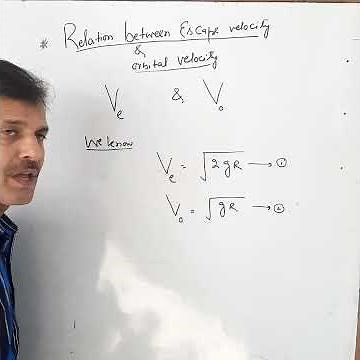 * Relation between Escape velocity
&
orbital velocity
Ve & Vo
We know
Ve = √2gR → ①
Vo = √gR → ②